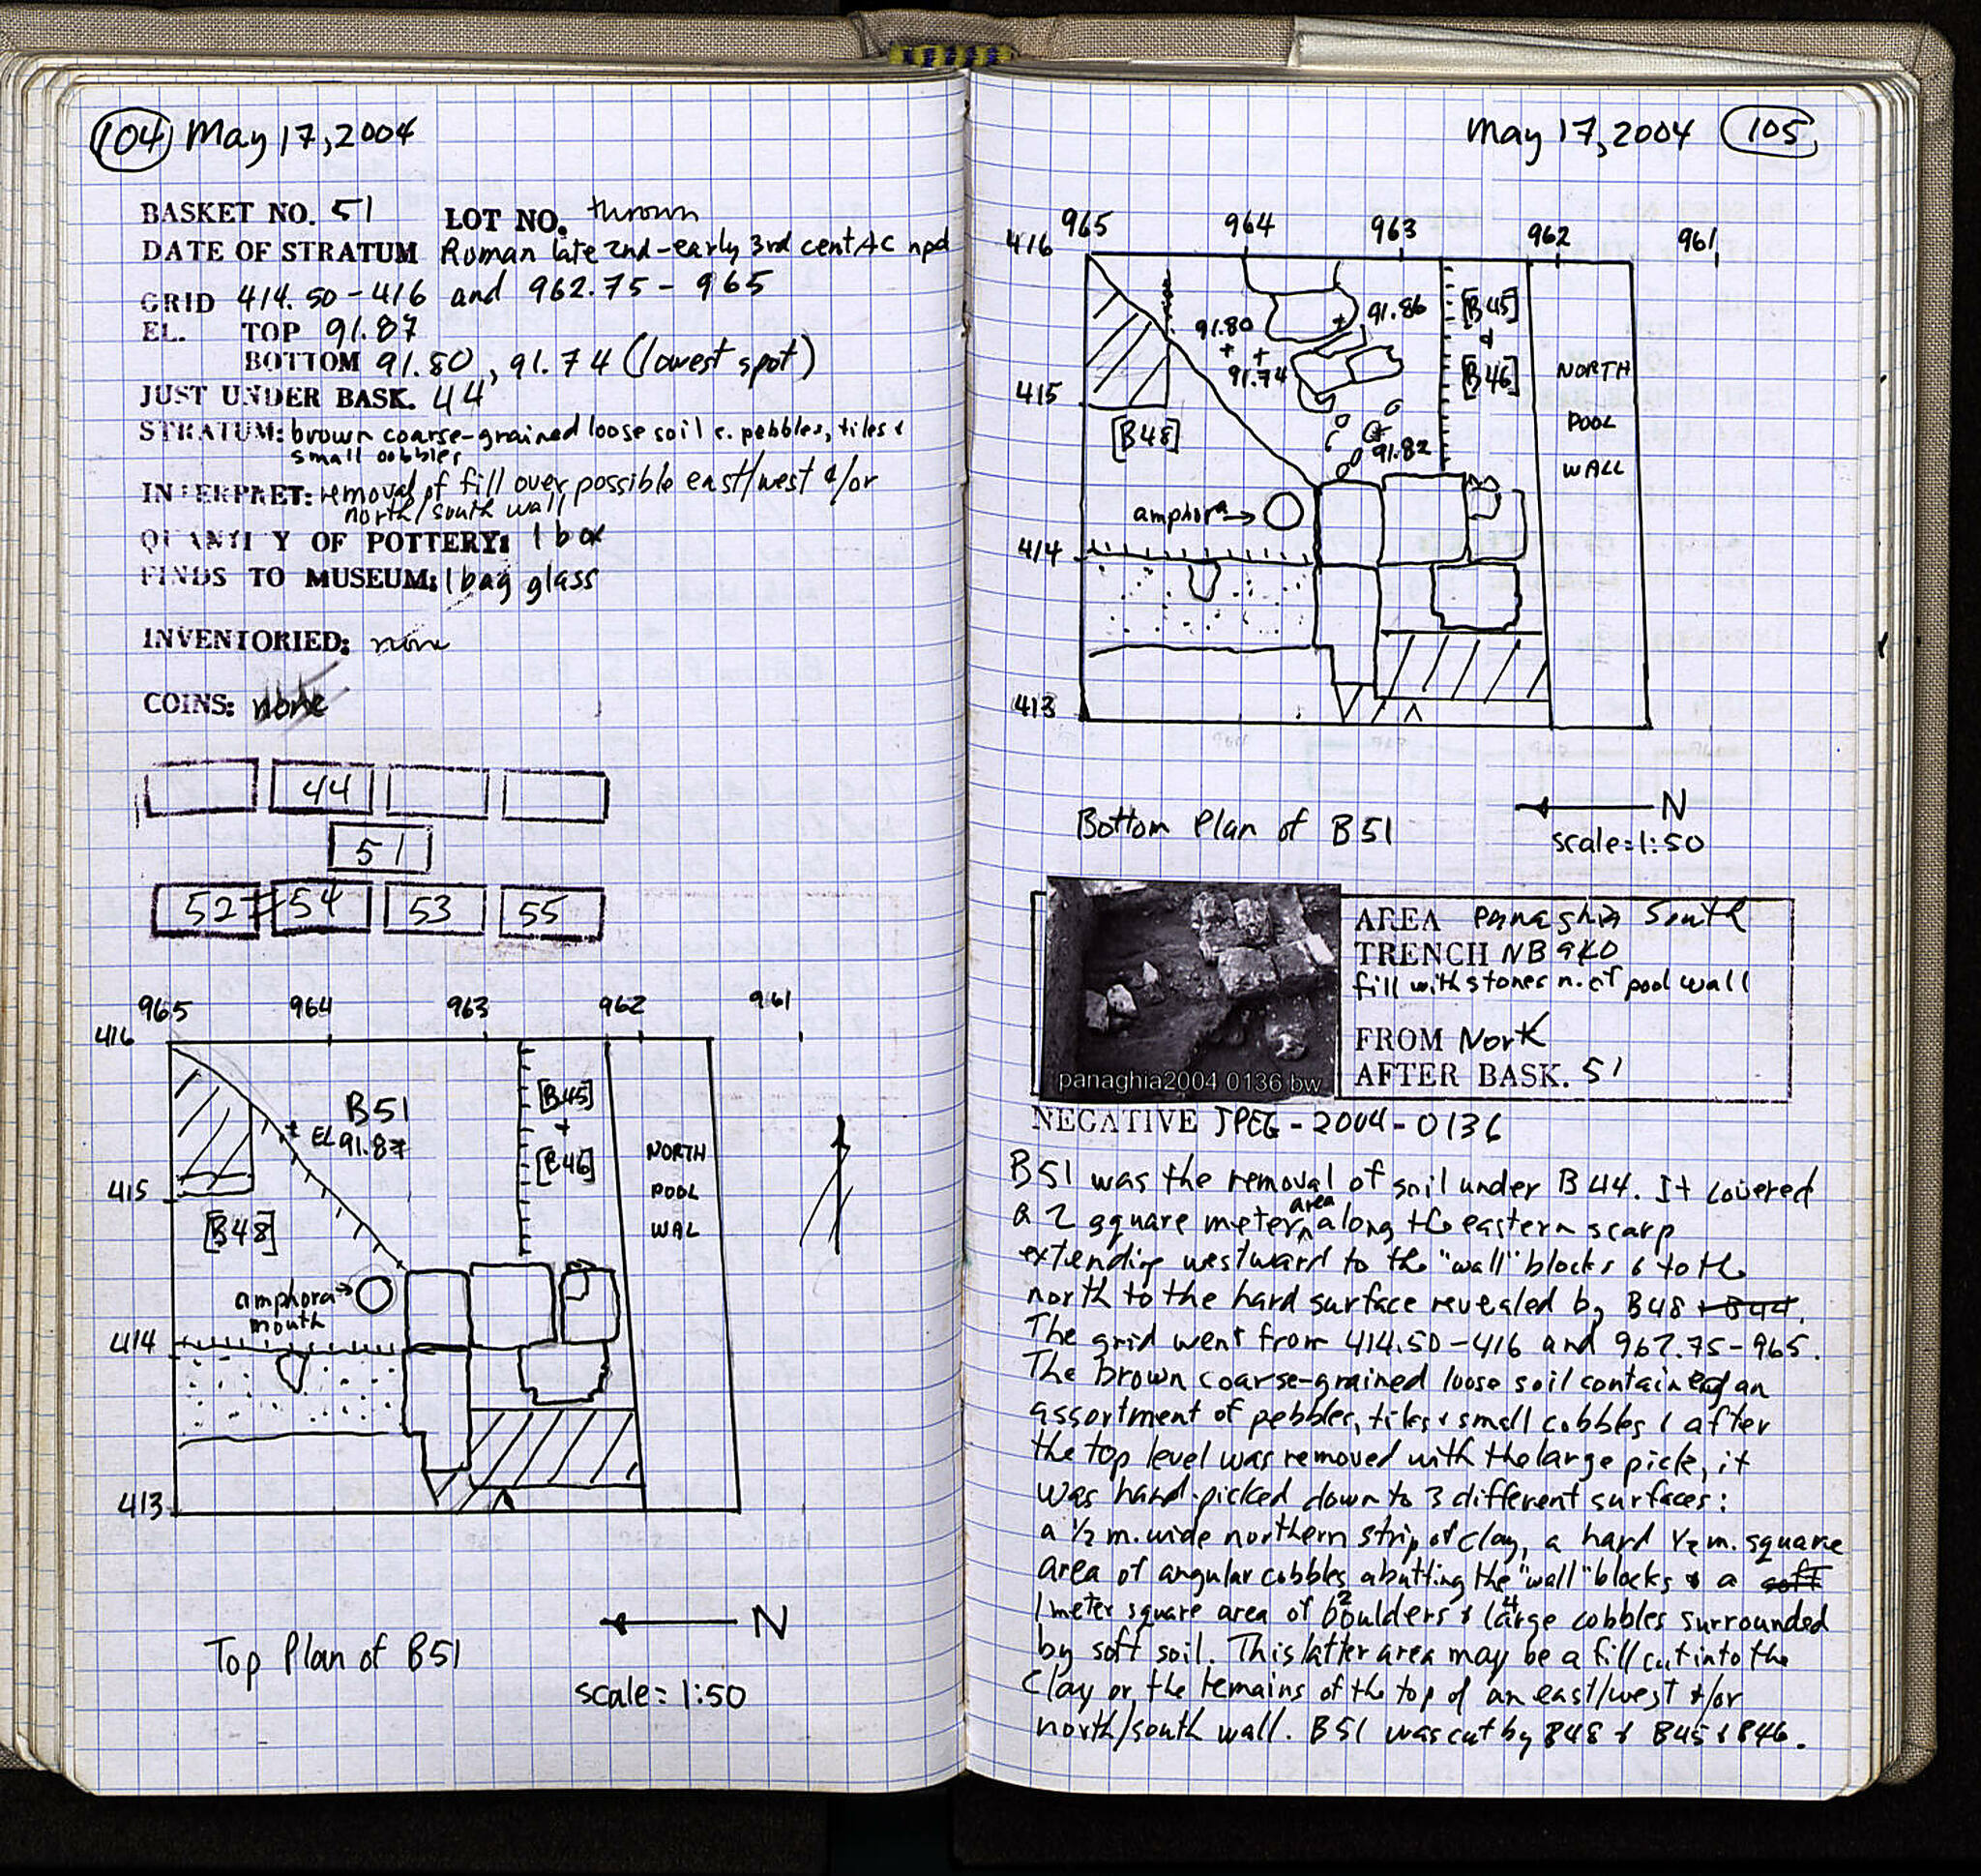 104 May 17, 2004
BASKET NO. 51 LOT NO. thrown
DATE OF STRATUM Roman late 2nd-early 3rd cent AC npd
GRID 414.50-416 and 962.75-965
EL. TOP 91.87
BOTTOM 91.80, 91.74 (lowest spot)
JUST UNDER BASK. 44
STRATUM: brown coarse-grained loose soil c. pebbles, tiles &
small cobbles
INTERPRET: removal of fill over possible east/west &/or
north/south wall
QUANTITY OF POTTERY: 1 box
FINDS TO MUSEUM: 1 bag glass
INVENTORIED: none
COINS: none
44
51
52 = 54 53 55
965 964 963 962 961
416
B51
EL 91.87
[B45]
+
[B46]
NORTH
POOL
WAL
415
[B48]
amphora
mouth
414
413
N
Top Plan of B51
scale = 1:50
May 17, 2004 105
965 964 963 962 961
416
91.80
91.86
91.74
[B45]
+
[B46]
NORTH
POOL
WALL
415
[B48]
91.82
amphora
414
413
N
Bottom Plan of B51
scale = 1:50
AREA Panaghia South
TRENCH NB 940
fill with stones n. of pool wall
FROM North
AFTER BASK. 51
panaghia2004 0136 bw
NEGATIVE JPEG-2004-0136
B51 was the removal of soil under B44. It covered
a 2 square meter area along the eastern scarp
extending westward to the "wall" blocks & to the
north to the hard surface revealed by B48 + B44.
The grid went from 414.50-416 and 962.75-965.
The brown coarse-grained loose soil contained an
assortment of pebbles, tiles & small cobbles & after
the top level was removed with the large pick, it
was hand-picked down to 3 different surfaces:
a 1/2 m. wide northern strip of clay, a hard 1/2 m. square
area of angular cobbles abutting the "wall" blocks & a soft
1 meter square area of 2 boulders & 4 large cobbles surrounded
by soft soil. This latter area may be a fill cut into the
clay or the remains of the top of an east/west &/or
north/south wall. B51 was cut by B48 & B45 & B46.